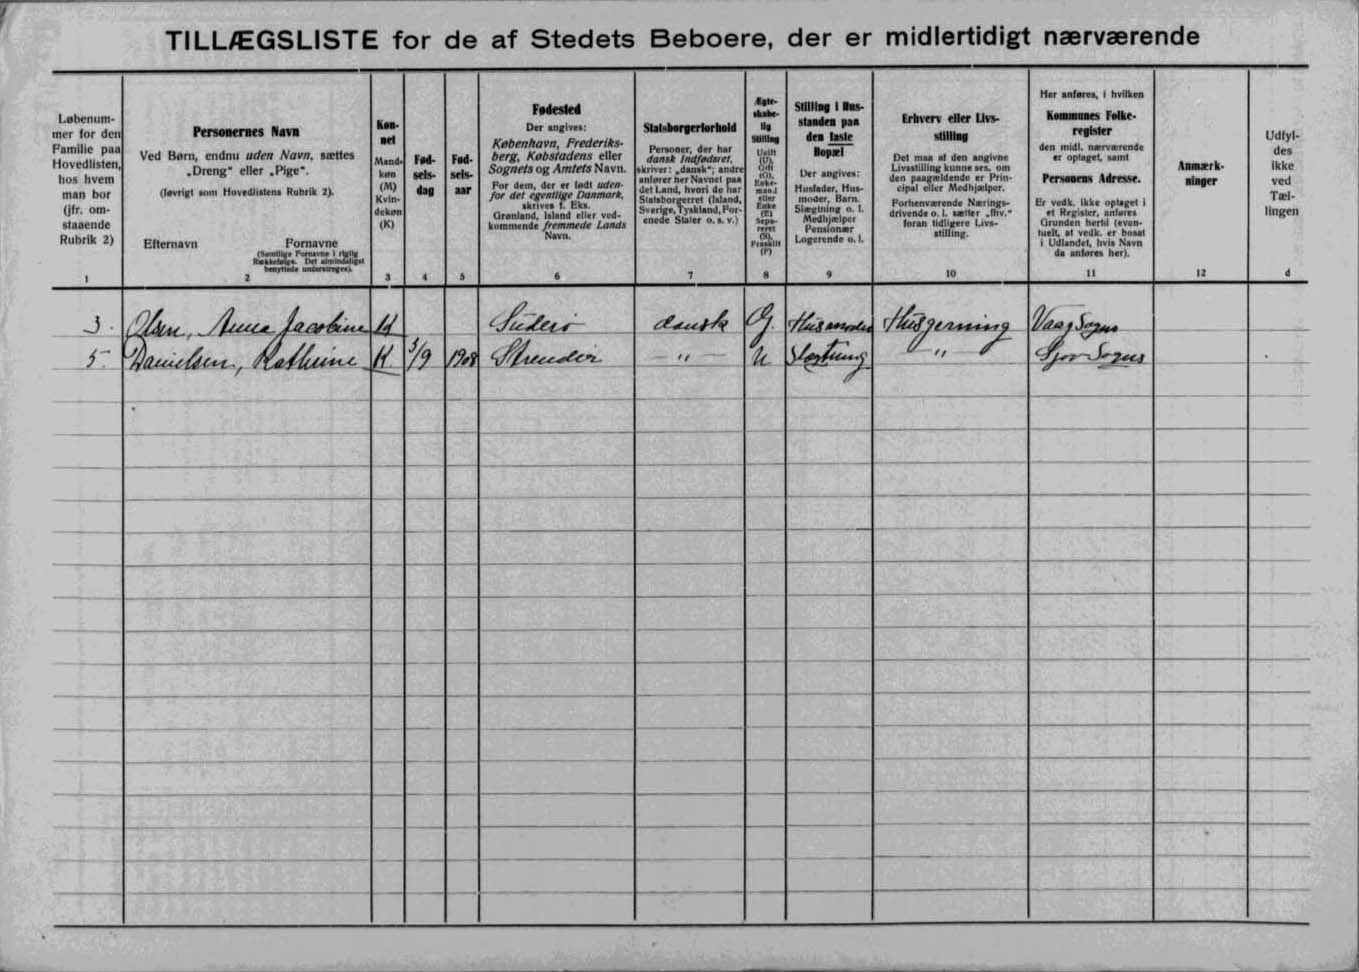 TILLÆGSLISTE for de af Stedets Beboere, der er midlertidigt nærværende
Løbenum-
mer for den
Familie paa
Hovedlisten,
hos hvem
man bor
(jfr. om-
staaende
Rubrik 2)
1
Personernes Navn
Ved Børn, endnu uden Navn, sættes
„Dreng“ eller „Pige“.
(Iøvrigt som Hovedlistens Rubrik 2).
Efternavn Fornavne
(Samtlige Fornavne i rigtig
Rækkefølge. Det almindeligst
benyttede understreges).
2
Køn-
net
Mand-
køn
(M)
Kvin-
dekøn
(K)
3
Fød-
sels-
dag
4
Fød-
sels-
aar
5
Fødested
Der angives:
København, Frederiks-
berg, Købstadens eller
Sognets og Amtets Navn.
For dem, der er født uden-
for det egentlige Danmark,
skrives f. Eks.
Grønland, Island eller ved-
kommende fremmede Lands
Navn.
6
Statsborgerforhold
Personer, der har
dansk Indfødsret,
skriver: „dansk“; andre
anfører her Navnet paa
det Land, hvori de har
Statsborgerret (Island,
Sverige, Tyskland, For-
enede Stater o. s. v.)
7
Ægte-
skabe-
lig
Stilling
Ugift
(U),
Gift
(G),
Enke-
mand
eller
Enke
(E)
Sepa-
reret
(S),
Fraskilt
(F)
8
Stilling i Hus-
standen paa
den faste
Bopæl
Der angives:
Husfader, Hus-
moder, Barn.
Slægtning o. l.
Medhjælper
Pensionær
Logerende o. l.
9
Erhverv eller Livs-
stilling
Det maa af den angivne
Livsstilling kunne ses, om
den paagældende er Prin-
cipal eller Medhjælper.
Forhenværende Nærings-
drivende o. l. sætter „fhv.“
foran tidligere Livs-
stilling.
10
Her anføres, i hvilken
Kommunes Folke-
register
den midl. nærværende
er optaget, samt
Personens Adresse.
Er vedk. ikke optaget i
et Register, anføres
Grunden hertil (even-
tuelt, at vedk. er bosat
i Udlandet, hvis Navn
da anføres her).
11
Anmærk-
ninger
12
Udfyl-
des
ikke
ved
Tæl-
lingen
d
3. Olsen, Anna Jacobine K Suderø dansk G. Husmoder Husgerning Vaag Sogns
5. Danielsen, Kathrine K 3/9 1908 Strendir — „ — U Slægtning „ Sjov Sogns